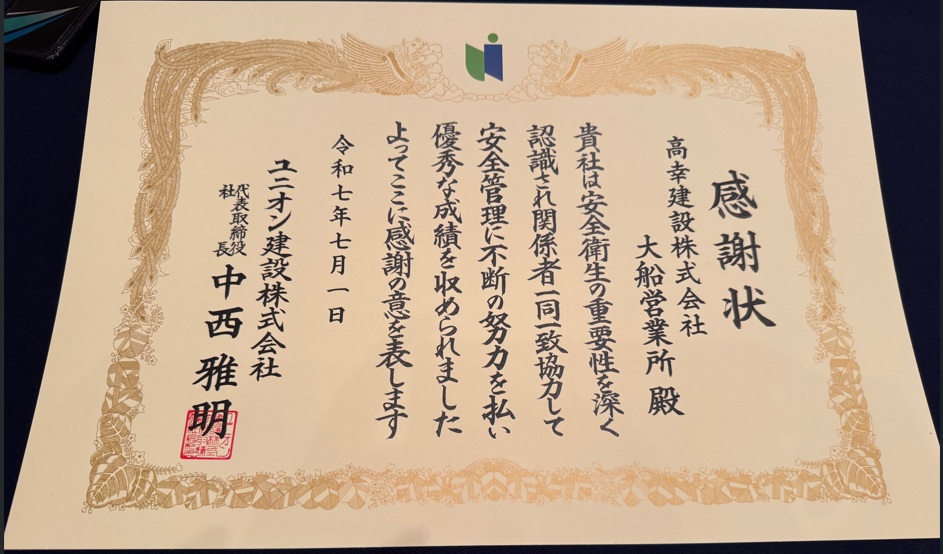 感謝状
高幸建設株式会社
大船営業所 殿
貴社は安全衛生の重要性を深く
認識され関係者一同一致協力して
安全管理に不断の努力を払い
優秀な成績を収められました
よってここに感謝の意を表します
令和七年七月一日
ユニオン建設株式会社
代表取締役
社長
中西雅明